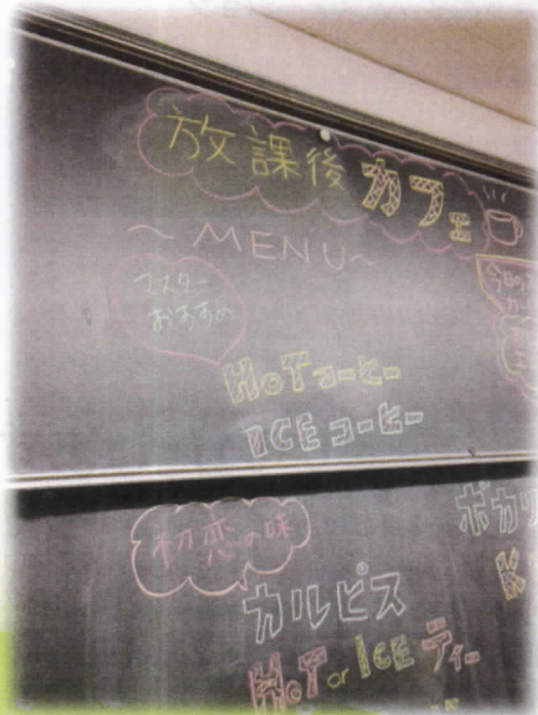 放課後カフェ
～MENU～
マスター
おすすめ
HOTコーヒー
ICEコーヒー
初恋の味
カルピス
HOT or ICE ティー
ポカリ